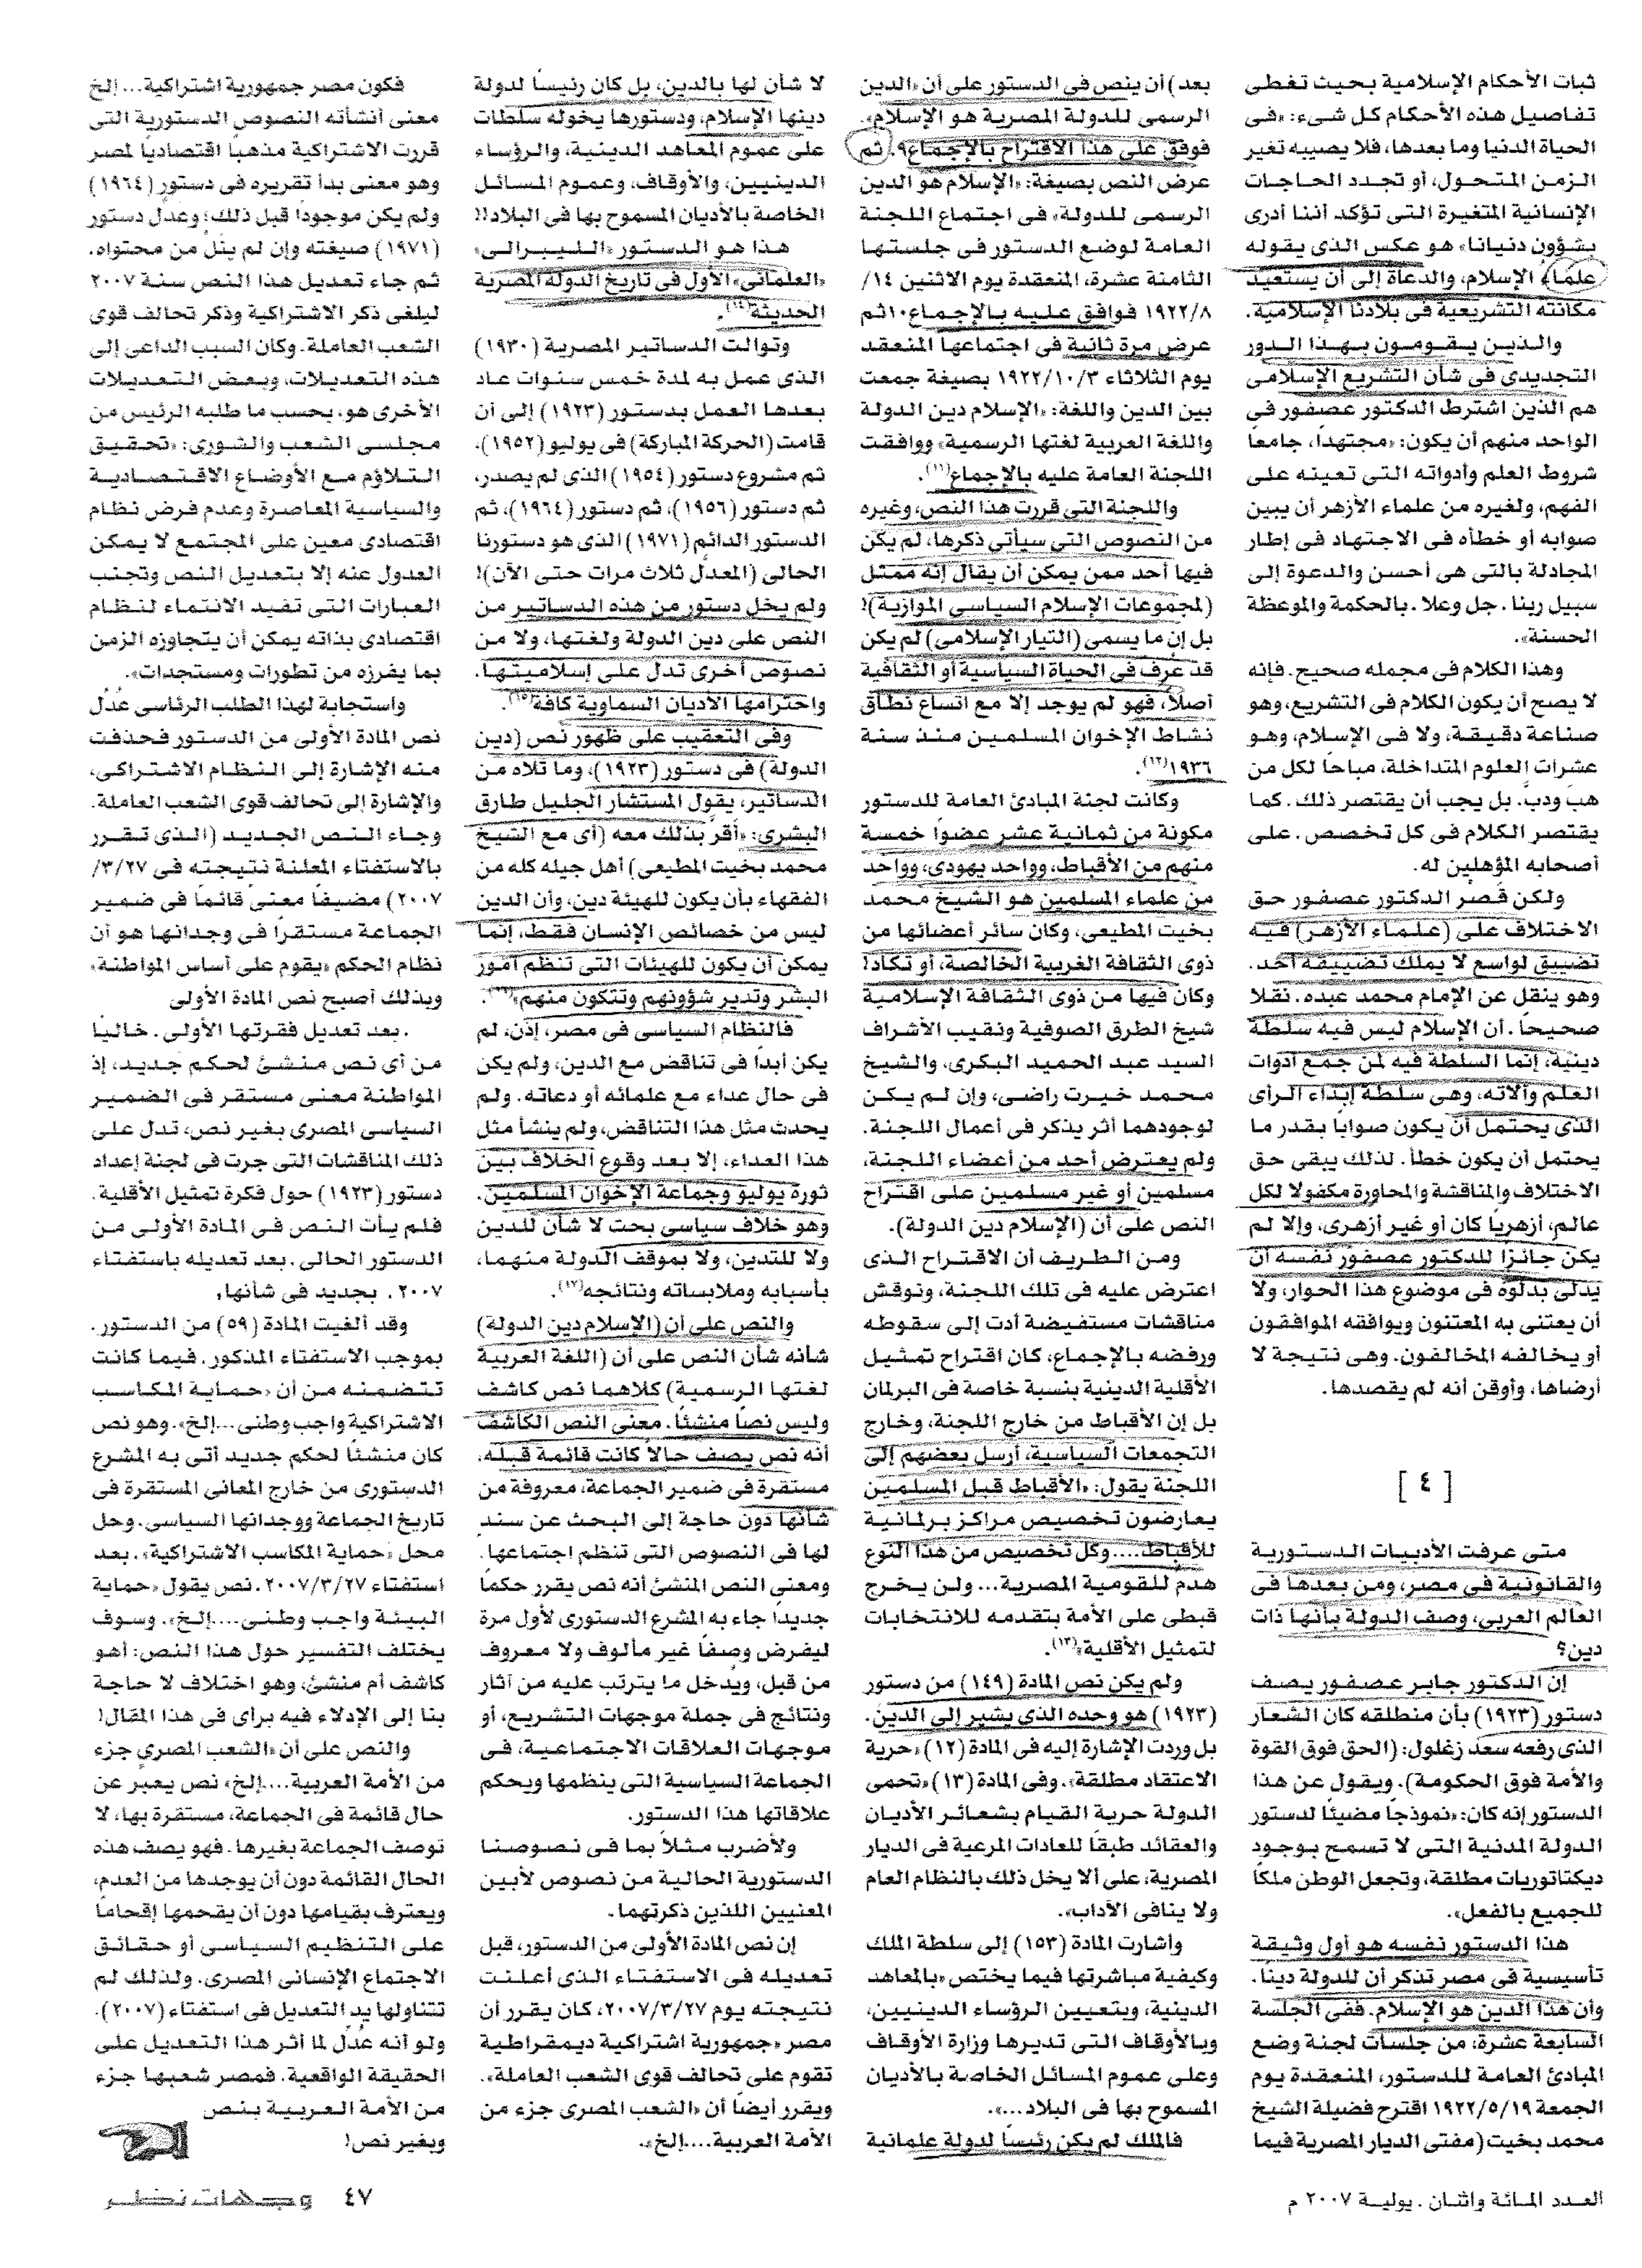 ثبات الأحكام الإسلامية بحيث تغطى
تفاصيل هذه الأحكام كل شىء: «فى
الحياة الدنيا وما بعدها، فلا يصيبه تغير
الزمن المتحول، أو تجدد الحاجات
الإنسانية المتغيرة التى تؤكد أننا أدرى
بشؤون دنيانا» هو عكس الذى يقوله
علماء الإسلام، والدعاة إلى أن يستعيد
مكانته التشريعية فى بلادنا الإسلامية.
والذين يقومون بهذا الدور
التجديدى فى شأن التشريع الإسلامى
هم الذين اشترط الدكتور عصفور فى
الواحد منهم أن يكون: «مجتهدا، جامعا
شروط العلم وأدواته التى تعينه على
الفهم، ولغيره من علماء الأزهر أن يبين
صوابه أو خطأه فى الاجتهاد فى إطار
المجادلة بالتى هى أحسن والدعوة إلى
سبيل ربنا. جل وعلا. بالحكمة والموعظة
الحسنة».
وهذا الكلام فى مجمله صحيح. فإنه
لا يصح أن يكون الكلام فى التشريع، وهو
صناعة دقيقة، ولا فى الإسلام، وهو
عشرات العلوم المتداخلة، مباحاً لكل من
هب ودبَّ. بل يجب أن يقتصر ذلك. كما
يقتصر الكلام فى كل تخصص. على
أصحابه المؤهلين له.
ولكن قَصر الدكتور عصفور حق
الاختلاف على (علماء الأزهر) فيه
تضييق لواسع لا يملك تضييقه أحد.
وهو ينقل عن الإمام محمد عبده. نقلا
صحيحاً. أن الإسلام ليس فيه سلطة
دينية، إنما السلطة فيه لمن جمع أدوات
العلم وآلاته، وهى سلطة إبداء الرأى
الذى يحتمل أن يكون صواباً بقدر ما
يحتمل أن يكون خطأ. لذلك يبقى حق
الاختلاف والمناقشة والمحاورة مكفولا لكل
عالم، أزهريا كان أو غير أزهرى، وإلا لم
يكن جائزا للدكتور عصفور نفسه أن
يدلى بدلوه فى موضوع هذا الحوار، ولا
أن يعتنى به المعتنون ويوافقه الموافقون
أو يخالفه المخالفون. وهى نتيجة لا
أرضاها، وأوقن أنه لم يقصدها.
[ ٤ ]
متى عرفت الأدبيات الدستورية
والقانونية فى مصر، ومن بعدها فى
العالم العربى، وصف الدولة بأنها ذات
دين؟
إن الدكتور جابر عصفور يصف
دستور (١٩٢٣) بأن منطلقه كان الشعار
الذى رفعه سعد زغلول: (الحق فوق القوة
والأمة فوق الحكومة). ويقول عن هذا
الدستور إنه كان: «نموذجاً مضيئا لدستور
الدولة المدنية التى لا تسمح بوجود
ديكتاتوريات مطلقة، وتجعل الوطن ملكا
للجميع بالفعل».
هذا الدستور نفسه هو أول وثيقة
تأسيسية فى مصر تذكر أن للدولة دينا،
وأن هذا الدين هو الإسلام. ففى الجلسة
السابعة عشرة، من جلسات لجنة وضع
المبادئ العامة للدستور، المنعقدة يوم
الجمعة ١٩٢٢/٥/١٩ اقترح فضيلة الشيخ
محمد بخيت (مفتى الديار المصرية فيما
بعد) أن ينص فى الدستور على أن «الدين
الرسمى للدولة المصرية هو الإسلام».
فووفق على هذا الاقتراح بالإجماع٩. ثم
عرض النص بصيغة: «الإسلام هو الدين
الرسمى للدولة» فى اجتماع اللجنة
العامة لوضع الدستور فى جلستها
الثامنة عشرة، المنعقدة يوم الاثنين ١٤/
١٩٢٢/٨ فوافق عليه بالإجماع١٠ ثم
عرض مرة ثانية فى اجتماعها المنعقد
يوم الثلاثاء ١٩٢٢/١٠/٣ بصيغة جمعت
بين الدين واللغة: «الإسلام دين الدولة
واللغة العربية لغتها الرسمية» ووافقت
اللجنة العامة عليه بالإجماع(١١).
واللجنة التى قررت هذا النص، وغيره
من النصوص التى سيأتى ذكرها، لم يكن
فيها أحد ممن يمكن أن يقال إنه ممثل
(لمجموعات الإسلام السياسى الموازية)!
بل إن ما يسمى (التيار الإسلامى) لم يكن
قد عرف فى الحياة السياسية أو الثقافية
أصلا، فهو لم يوجد إلا مع اتساع نطاق
نشاط الإخوان المسلمين منذ سنة
١٩٣٦(١٢).
وكانت لجنة المبادئ العامة للدستور
مكونة من ثمانية عشر عضوا خمسة
منهم من الأقباط، وواحد يهودى، وواحد
من علماء المسلمين هو الشيخ محمد
بخيت المطيعى، وكان سائر أعضائها من
ذوى الثقافة الغربية الخالصة، أو تكاد!
وكان فيها من ذوى الثقافة الإسلامية
شيخ الطرق الصوفية ونقيب الأشراف
السيد عبد الحميد البكرى، والشيخ
محمد خيرت راضى، وإن لم يكن
لوجودهما أثر يذكر فى أعمال اللجنة.
ولم يعترض أحد من أعضاء اللجنة،
مسلمين أو غير مسلمين على اقتراح
النص على أن (الإسلام دين الدولة).
ومن الطريف أن الاقتراح الذى
اعترض عليه فى تلك اللجنة، ونوقش
مناقشات مستفيضة أدت إلى سقوطه
ورفضه بالإجماع، كان اقتراح تمثيل
الأقلية الدينية بنسبة خاصة فى البرلمان
بل إن الأقباط من خارج اللجنة، وخارج
التجمعات السياسية، أرسل بعضهم إلى
اللجنة يقول: «الأقباط قبل المسلمين
يعارضون تخصيص مراكز برلمانية
للأقباط.... وكل تخصيص من هذا النوع
هدم للقومية المصرية... ولن يخرج
قبطى على الأمة بتقدمه للانتخابات
لتمثيل الأقلية»(١٣).
ولم يكن نص المادة (١٤٩) من دستور
(١٩٢٣) هو وحده الذى يشير إلى الدين.
بل وردت الإشارة إليه فى المادة (١٢) «حرية
الاعتقاد مطلقة». وفى المادة (١٣) «تحمى
الدولة حرية القيام بشعائر الأديان
والعقائد طبقا للعادات المرعية فى الديار
المصرية، على ألا يخل ذلك بالنظام العام
ولا ينافى الآداب».
وأشارت المادة (١٥٣) إلى سلطة الملك
وكيفية مباشرتها فيما يختص «بالمعاهد
الدينية، وبتعيين الرؤساء الدينيين،
وبالأوقاف التى تديرها وزارة الأوقاف
وعلى عموم المسائل الخاصة بالأديان
المسموح بها فى البلاد...».
فالملك لم يكن رئيساً لدولة علمانية
لا شأن لها بالدين، بل كان رئيسا لدولة
دينها الإسلام، ودستورها يخوله سلطات
على عموم المعاهد الدينية، والرؤساء
الدينيين، والأوقاف، وعموم المسائل
الخاصة بالأديان المسموح بها فى البلاد!!
هذا هو الدستور «الليبرالى»
«العلمانى» الأول فى تاريخ الدولة المصرية
الحديثة(١٤).
وتوالت الدساتير المصرية (١٩٣٠)
الذى عمل به لمدة خمس سنوات عاد
بعدها العمل بدستور (١٩٢٣) إلى أن
قامت (الحركة المباركة) فى يوليو (١٩٥٢)،
ثم مشروع دستور (١٩٥٤) الذى لم يصدر،
ثم دستور (١٩٥٦)، ثم دستور (١٩٦٤)، ثم
الدستور الدائم (١٩٧١) الذى هو دستورنا
الحالى (المعدل ثلاث مرات حتى الآن)!
ولم يخل دستور من هذه الدساتير من
النص على دين الدولة ولغتها، ولا من
نصوص أخرى تدل على إسلاميتها،
واحترامها الأديان السماوية كافة(١٥).
وفى التعقيب على ظهور نص (دين
الدولة) فى دستور (١٩٢٣)، وما تلاه من
الدساتير، يقول المستشار الجليل طارق
البشرى: «أقرَّ بذلك معه (أى مع الشيخ
محمد بخيت المطيعى) أهل جيله كله من
الفقهاء بأن يكون للهيئة دين، وأن الدين
ليس من خصائص الإنسان فقط، إنما
يمكن أن يكون للهيئات التى تنظم أمور
البشر وتدير شؤونهم وتتكون منهم»(١٦).
فالنظام السياسى فى مصر، إذن، لم
يكن أبداً فى تناقض مع الدين، ولم يكن
فى حال عداء مع علمائه أو دعاته. ولم
يحدث مثل هذا التناقض، ولم ينشأ مثل
هذا العداء، إلا بعد وقوع الخلاف بين
ثورة يوليو وجماعة الإخوان المسلمين.
وهو خلاف سياسى بحت لا شأن للدين
ولا للتدين، ولا بموقف الدولة منهما،
بأسبابه وملابساته ونتائجه(١٧).
والنص على أن (الإسلام دين الدولة)
شأنه شأن النص على أن (اللغة العربية
لغتها الرسمية) كلاهما نص كاشف
وليس نصاً منشئا. معنى النص الكاشف
أنه نص يصف حالا كانت قائمة قبله،
مستقرة فى ضمير الجماعة، معروفة من
شأنها دون حاجة إلى البحث عن سند
لها فى النصوص التى تنظم اجتماعها.
ومعنى النص المنشئ أنه نص يقرر حكماً
جديدا جاء به المشرع الدستورى لأول مرة
ليفرض وصفا غير مألوف ولا معروف
من قبل، ويدخل ما يترتب عليه من آثار
ونتائج فى جملة موجهات التشريع، أو
موجهات العلاقات الاجتماعية، فى
الجماعة السياسية التى ينظمها ويحكم
علاقاتها هذا الدستور.
ولأضرب مثلاً بما فى نصوصنا
الدستورية الحالية من نصوص لأبين
المعنيين اللذين ذكرتهما.
إن نص المادة الأولى من الدستور، قبل
تعديله فى الاستفتاء الذى أعلنت
نتيجته يوم ٢٠٠٧/٣/٢٧، كان يقرر أن
مصر «جمهورية اشتراكية ديمقراطية
تقوم على تحالف قوى الشعب العاملة».
ويقرر أيضاً أن «الشعب المصرى جزء من
الأمة العربية....إلخ».
فكون مصر جمهورية اشتراكية... إلخ
معنى أنشأته النصوص الدستورية التى
قررت الاشتراكية مذهباً اقتصاديا لمصر
وهو معنى بدأ تقريره فى دستور (١٩٦٤)
ولم يكن موجودا قبل ذلك؛ وعدل دستور
(١٩٧١) صيغته وإن لم ينل من محتواه.
ثم جاء تعديل هذا النص سنة ٢٠٠٧
ليلغى ذكر الاشتراكية وذكر تحالف قوى
الشعب العاملة. وكان السبب الداعى إلى
هذه التعديلات، وبعض التعديلات
الأخرى هو، بحسب ما طلبه الرئيس من
مجلسى الشعب والشورى: «تحقيق
التلاؤم مع الأوضاع الاقتصادية
والسياسية المعاصرة وعدم فرض نظام
اقتصادى معين على المجتمع لا يمكن
العدول عنه إلا بتعديل النص وتجنب
العبارات التى تفيد الانتماء لنظام
اقتصادى بذاته يمكن أن يتجاوزه الزمن
بما يفرزه من تطورات ومستجدات».
واستجابة لهذا الطلب الرئاسى عُدل
نص المادة الأولى من الدستور فحذفت
منه الإشارة إلى النظام الاشتراكى،
والإشارة إلى تحالف قوى الشعب العاملة.
وجاء النص الجديد (الذى تقرر
بالاستفتاء المعلنة نتيجته فى ٣/٢٧/
٢٠٠٧) مضيفاً معنى قائما فى ضمير
الجماعة مستقرا فى وجدانها هو أن
نظام الحكم «يقوم على أساس المواطنة»
وبذلك أصبح نص المادة الأولى
. بعد تعديل فقرتها الأولى. خاليا
من أى نص منشئ لحكم جديد، إذ
المواطنة معنى مستقر فى الضمير
السياسى المصرى بغير نص، تدل على
ذلك المناقشات التى جرت فى لجنة إعداد
دستور (١٩٢٣) حول فكرة تمثيل الأقلية.
فلم يأت النص فى المادة الأولى من
الدستور الحالى. بعد تعديله باستفتاء
٢٠٠٧. بجديد فى شأنها.
وقد ألغيت المادة (٥٩) من الدستور.
بموجب الاستفتاء المذكور. فيما كانت
تتضمنه من أن «حماية المكاسب
الاشتراكية واجب وطنى...إلخ». وهو نص
كان منشئا لحكم جديد أتى به المشرع
الدستورى من خارج المعانى المستقرة فى
تاريخ الجماعة ووجدانها السياسى. وحل
محل «حماية المكاسب الاشتراكية». بعد
استفتاء ٢٠٠٧/٣/٢٧. نص يقول «حماية
البيئة واجب وطنى....إلخ». وسوف
يختلف التفسير حول هذا النص: أهو
كاشف أم منشئ، وهو اختلاف لا حاجة
بنا إلى الإدلاء فيه برأى فى هذا المقال!
والنص على أن «الشعب المصرى جزء
من الأمة العربية....إلخ» نص يعبر عن
حال قائمة فى الجماعة، مستقرة بها، لا
توصف الجماعة بغيرها. فهو يصف هذه
الحال القائمة دون أن يوجدها من العدم،
ويعترف بقيامها دون أن يقحمها إقحاما
على التنظيم السياسى أو حقائق
الاجتماع الإنسانى المصرى. ولذلك لم
تتناولها يد التعديل فى استفتاء (٢٠٠٧).
ولو أنه عُدل لما أثر هذا التعديل على
الحقيقة الواقعية. فمصر شعبها جزء
من الأمة العربية بنص
وبغير نص!
العدد المائة واثنان . يولية ٢٠٠٧ م
٤٧ وجهات نظر